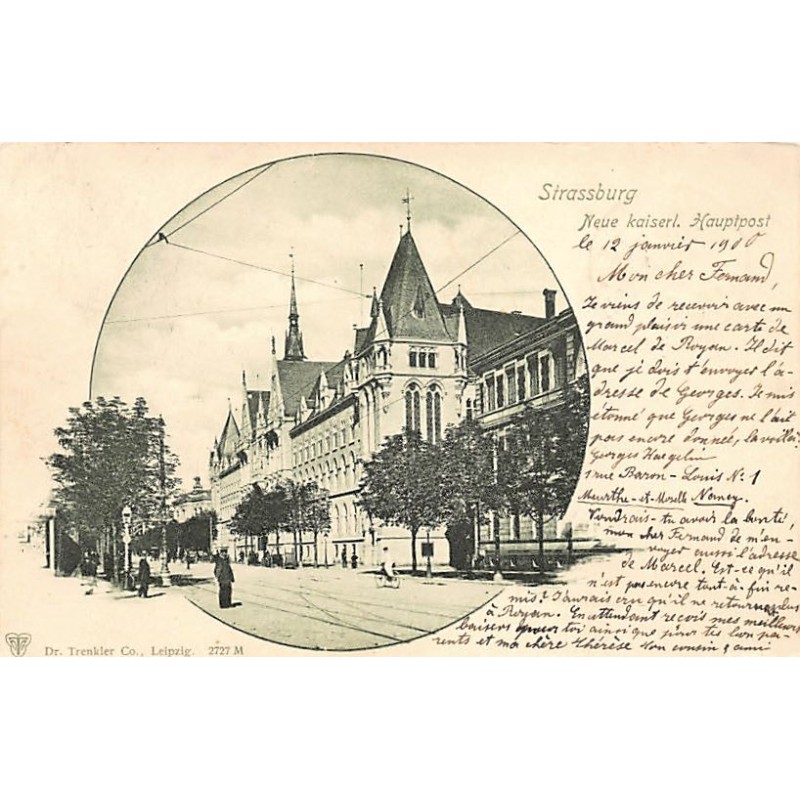 Strassburg
Neue kaiserl. Hauptpost
le 12 janvier 1900
Mon cher Fernand,
Je viens de recevoir avec un
grand plaisir une carte de
Marcel de Royan. Il dit
que je dois t'envoyer l'a-
dresse de Georges. Je suis
étonné que Georges ne l'ait
pas encore donnée, la voilà:
Georges Haegelin
1 rue Baron-Louis N. 1
Meurthe-et-Moselle Nancy.
Voudrais-tu avoir la bonté,
mon cher Fernand de m'en-
voyer aussi l'adresse
de Marcel. Est-ce qu'il
n'est pas encore tout-à-fait re-
mis? J'aurais cru qu'il ne retournait plus
à Royan. En attendant reçois mes meilleurs
baisers pour toi ainsi que pour tes bon pa-
rents et ma chère Thérèse Ton cousin
Dr. Trenkler Co., Leipzig. 2727 M